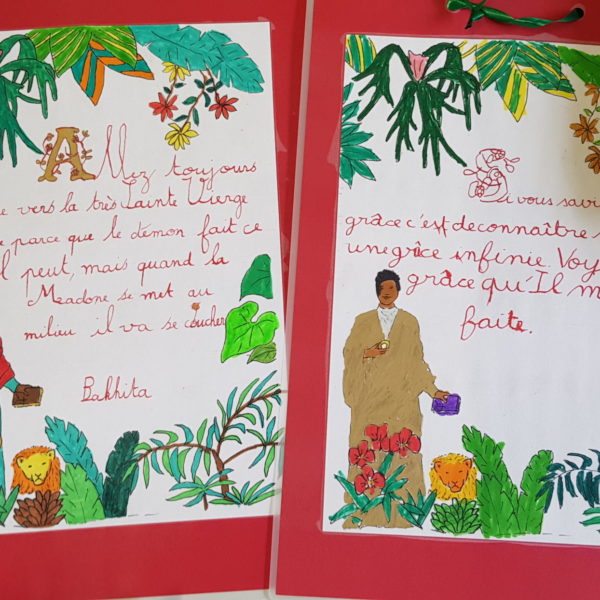 Allez toujours
e vers la très Sainte Vierge
e parce que le démon fait ce
l peut, mais quand la
Meadone se met au
milieu il va se coucher
Bakhita
Si vous savi
grâce c'est de connaître
une grâce infinie. Voy
grâce qu'Il m
faite.